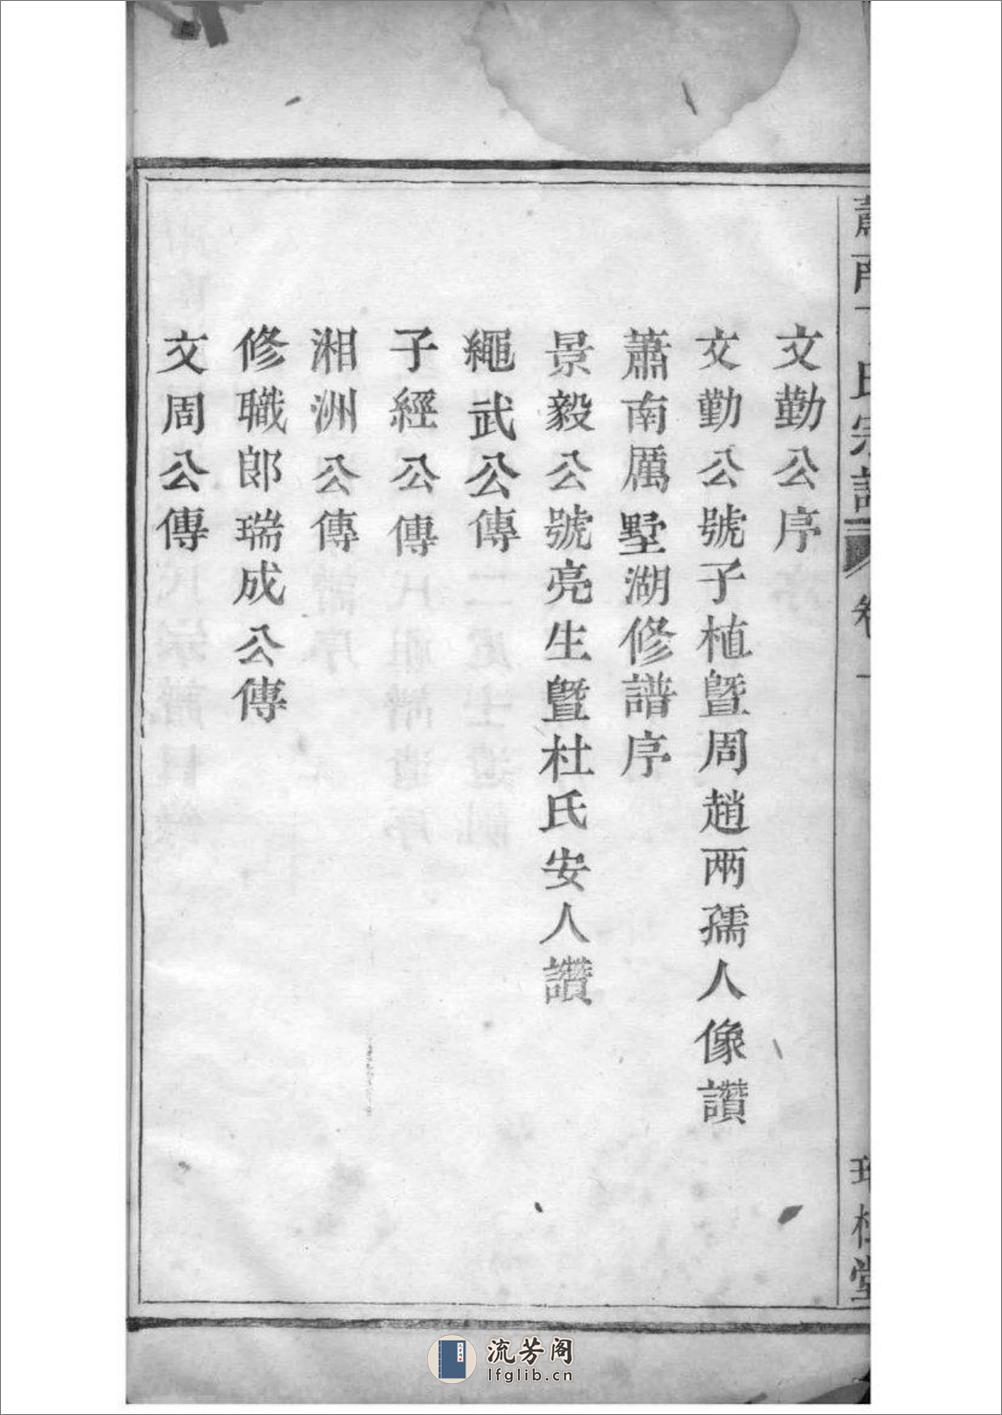 文勤公序
文勤公號子植暨周趙兩孺人像讚
蕭南厲墅湖修譜序
景毅公號亮生暨杜氏安人讚
繩武公傳
子經公傳
湘洲公傳
修職郎瑞成公傳
文周公傳
流芳阁
lfglib.cn